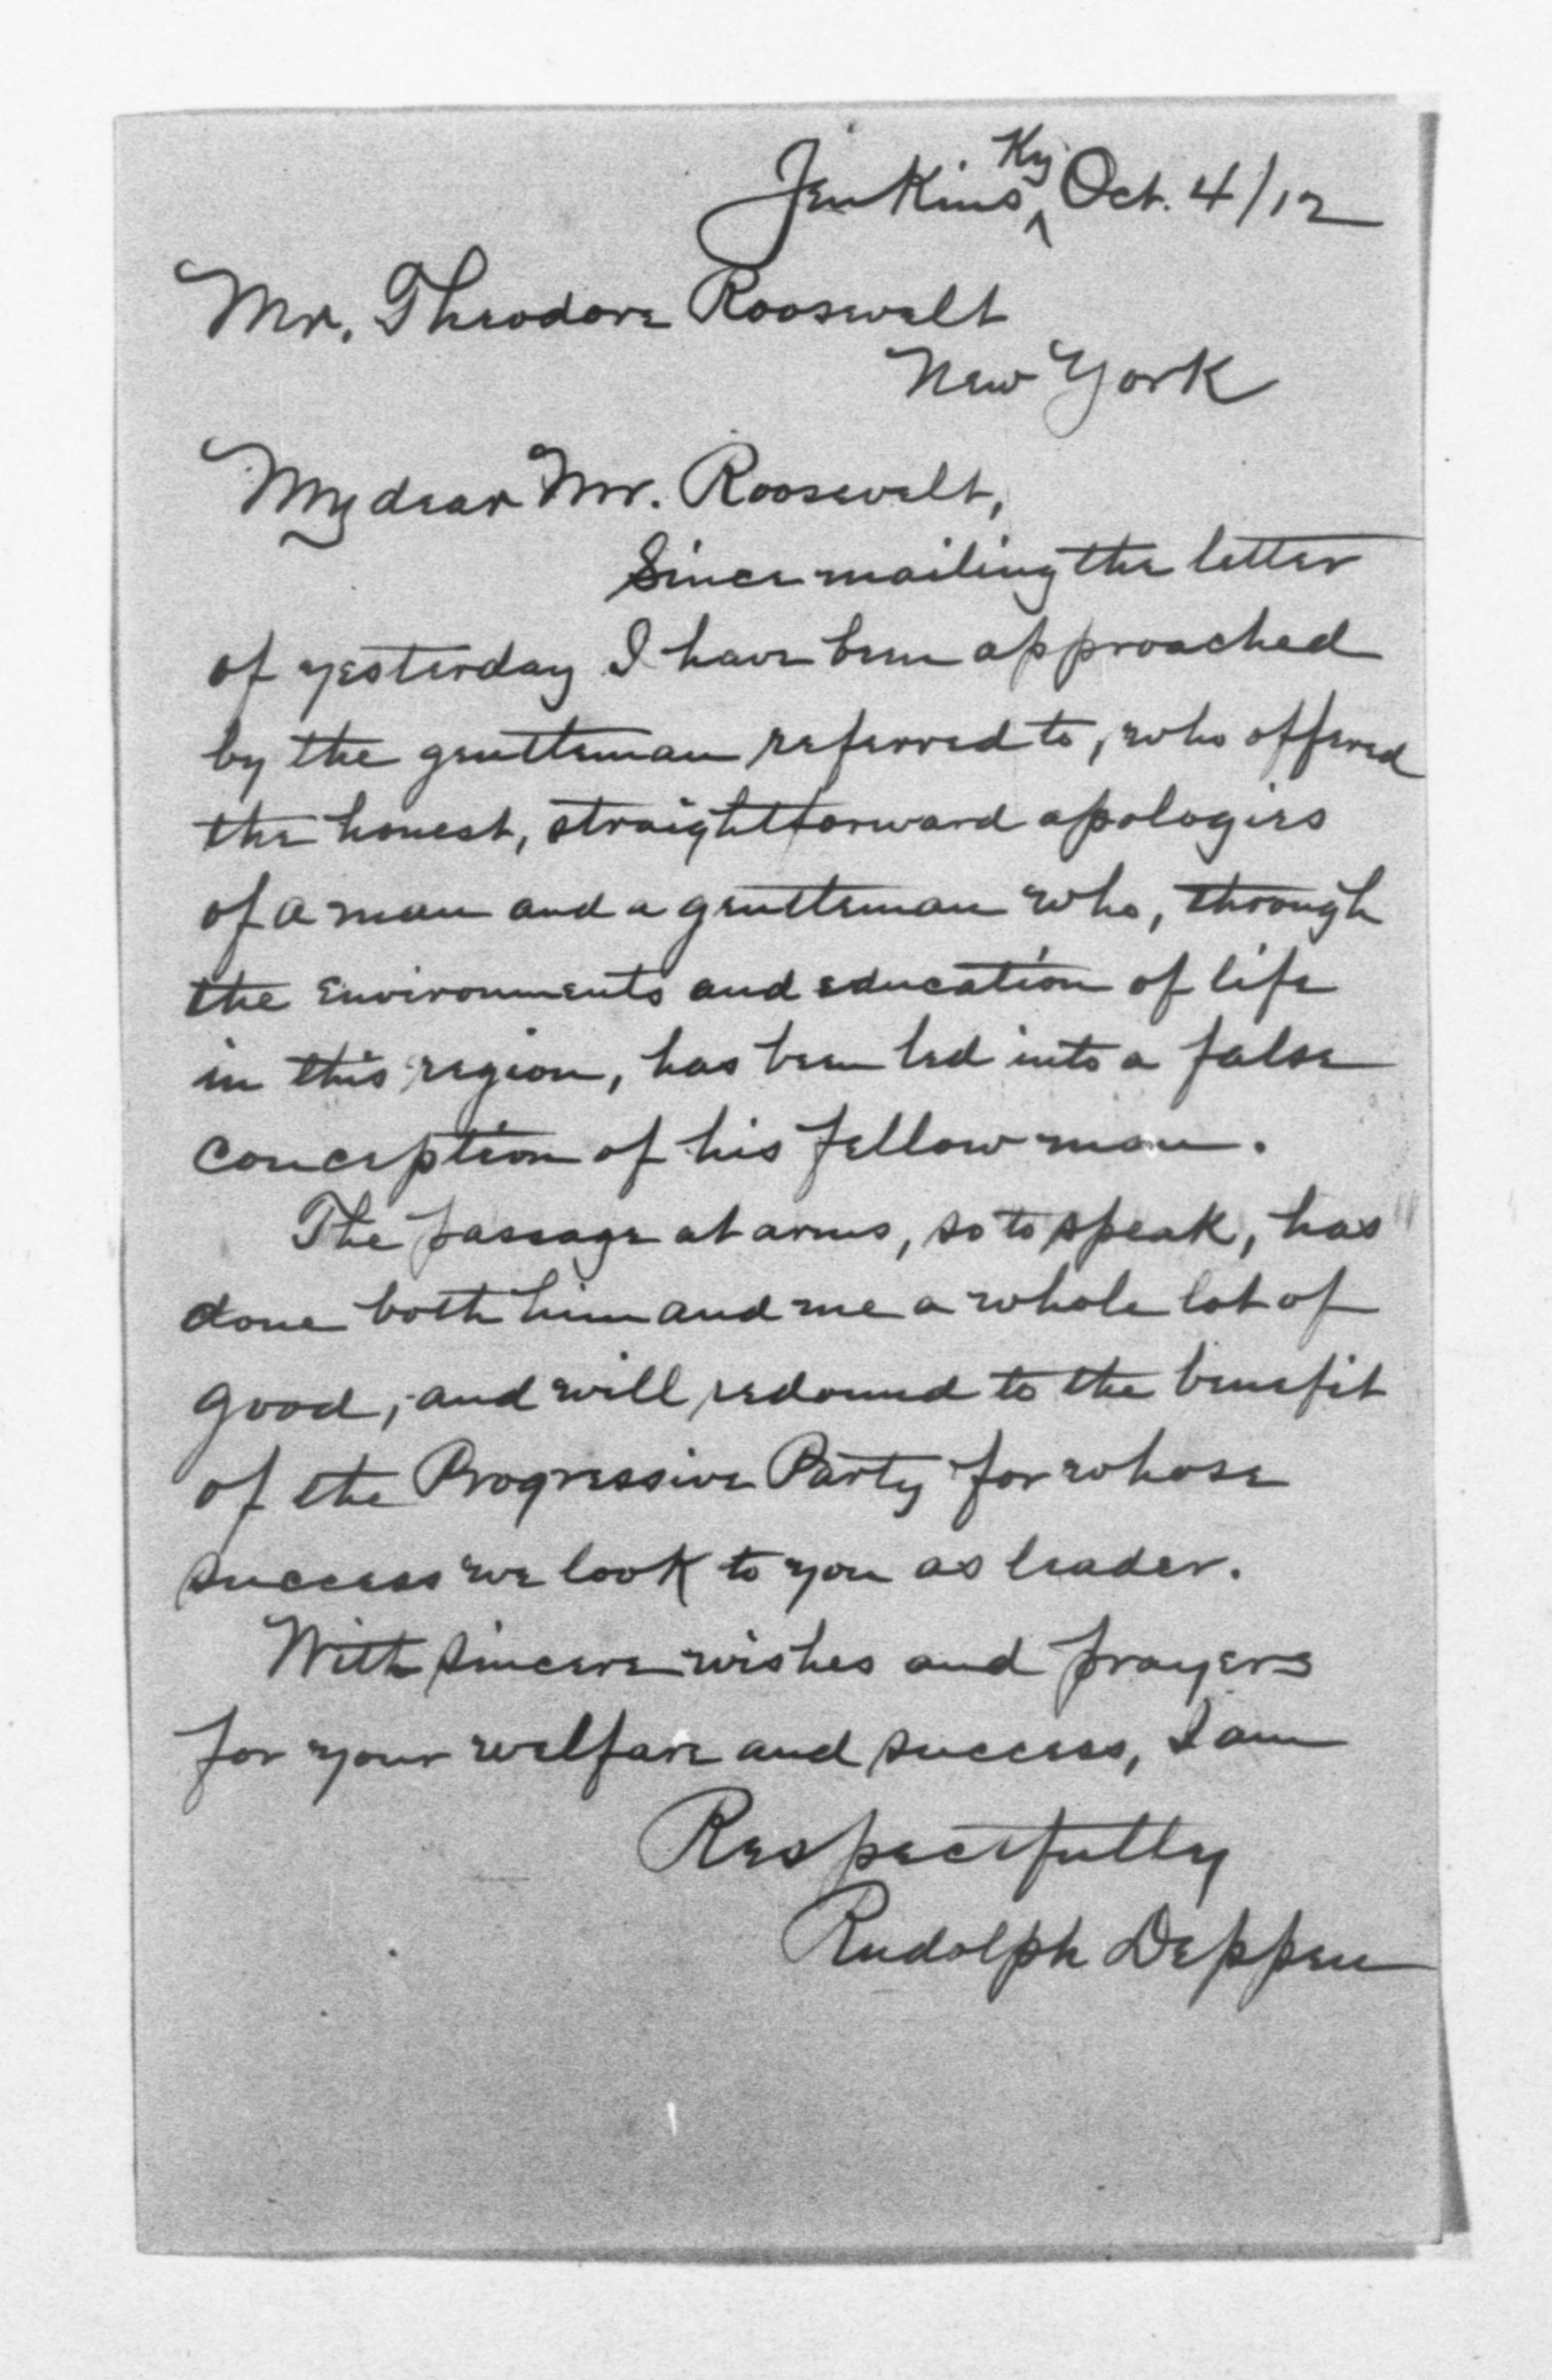 Jenkins, Ky Oct. 4/12
Mr. Theodore Roosevelt
New York
My dear Mr. Roosevelt,
Since mailing the letter
of yesterday I have been approached
by the gentleman referred to, who offered
the honest, straightforward apologies
of a man and a gentleman who, through
the environments and education of life
in this region, has been led into a false
conception of his fellow man.
The passage at arms, so to speak, has
done both him and me a whole lot of
good, and will redound to the benefit
of the Progressive Party for whose
success we look to you as leader.
With sincere wishes and prayers
for your welfare and success, I am
Respectfully
Rudolph Deppen